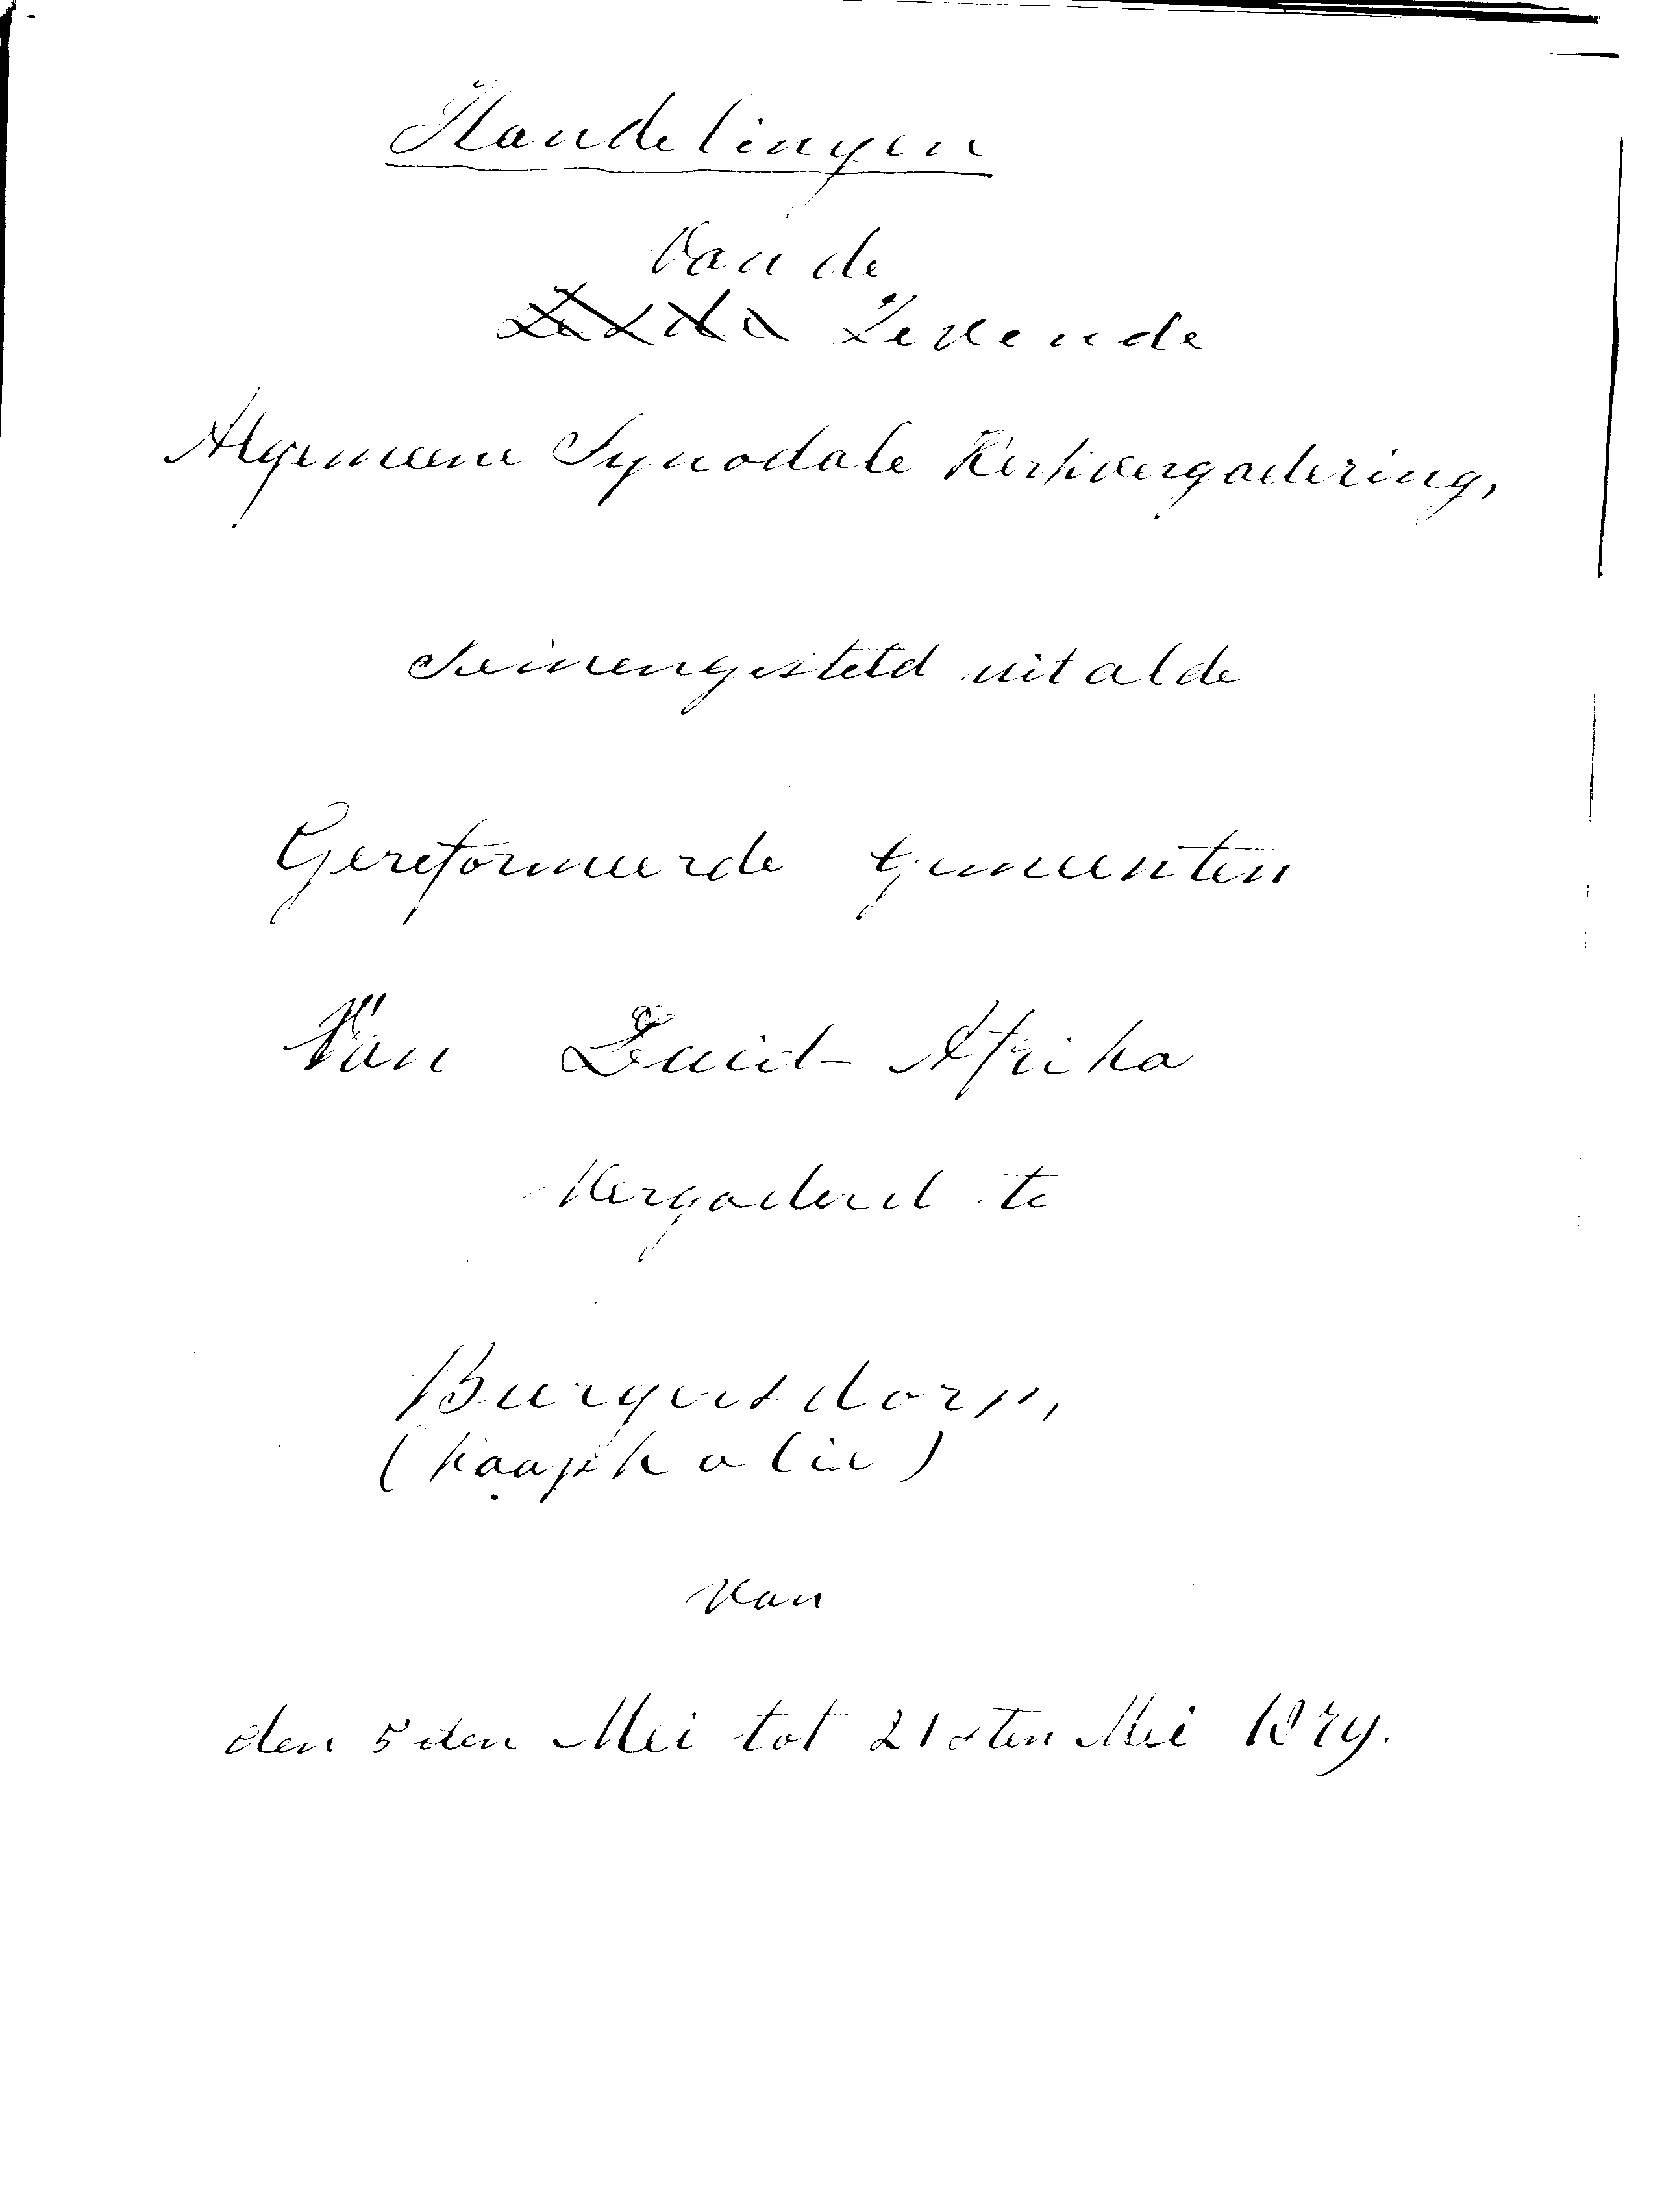 Handelingen
Van de
Zesde Zevende
Algemeene Synodale Kerkvergadering,
Samengesteld uit al de
Gereformeerde Gemeenten
Van Zuid-Afrika
Vergaderd te
Burgersdorp,
(Kaapkolie)
Van
den 5den Mei tot 21sten Mei 1879.